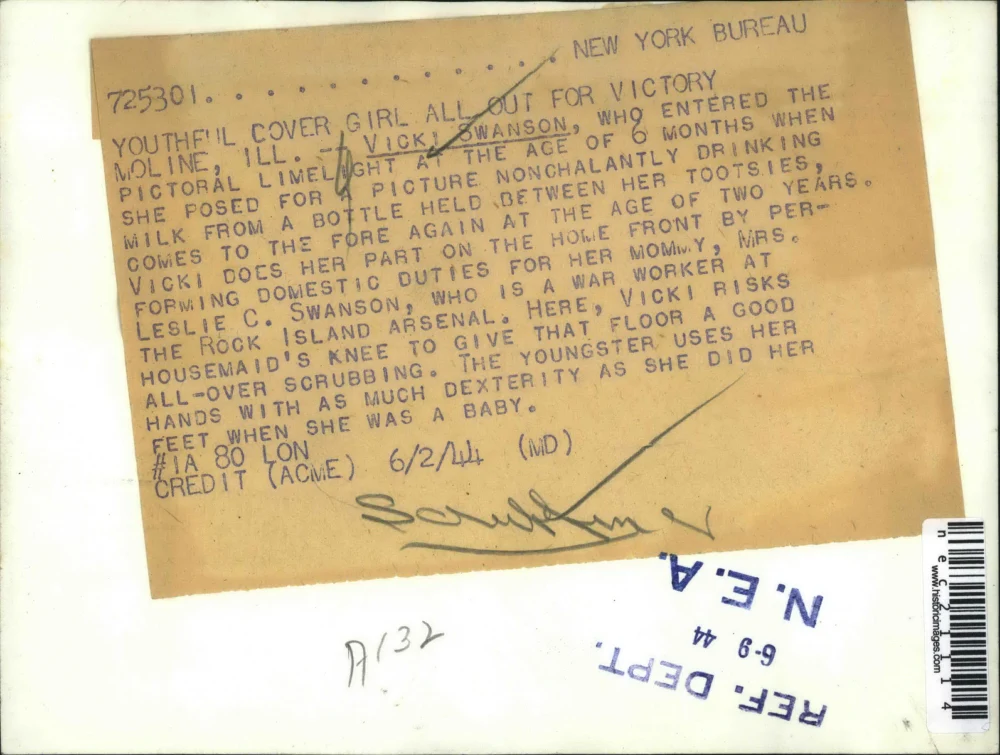 725301. . . . . . . . . . . . . . NEW YORK BUREAU
YOUTHFUL COVER GIRL ALL OUT FOR VICTORY
MOLINE, ILL. -- VICKI SWANSON, WHO ENTERED THE
PICTORAL LIMELIGHT AT THE AGE OF 6 MONTHS WHEN
SHE POSED FOR A PICTURE NONCHALANTLY DRINKING
MILK FROM A BOTTLE HELD BETWEEN HER TOOTSIES,
COMES TO THE FORE AGAIN AT THE AGE OF TWO YEARS.
VICKI DOES HER PART ON THE HOME FRONT BY PER-
FORMING DOMESTIC DUTIES FOR HER MOMMY, MRS.
LESLIE C. SWANSON, WHO IS A WAR WORKER AT
THE ROCK ISLAND ARSENAL. HERE, VICKI RISKS
HOUSEMAID'S KNEE TO GIVE THAT FLOOR A GOOD
ALL-OVER SCRUBBING. THE YOUNGSTER USES HER
HANDS WITH AS MUCH DEXTERITY AS SHE DID HER
FEET WHEN SHE WAS A BABY.
#1A 80 LON
CREDIT (ACME) 6/2/44 (MD)
Scrubbing
N.E.A.
6-9 44
REF. DEPT.
A132
nec21114
www.historicimages.com